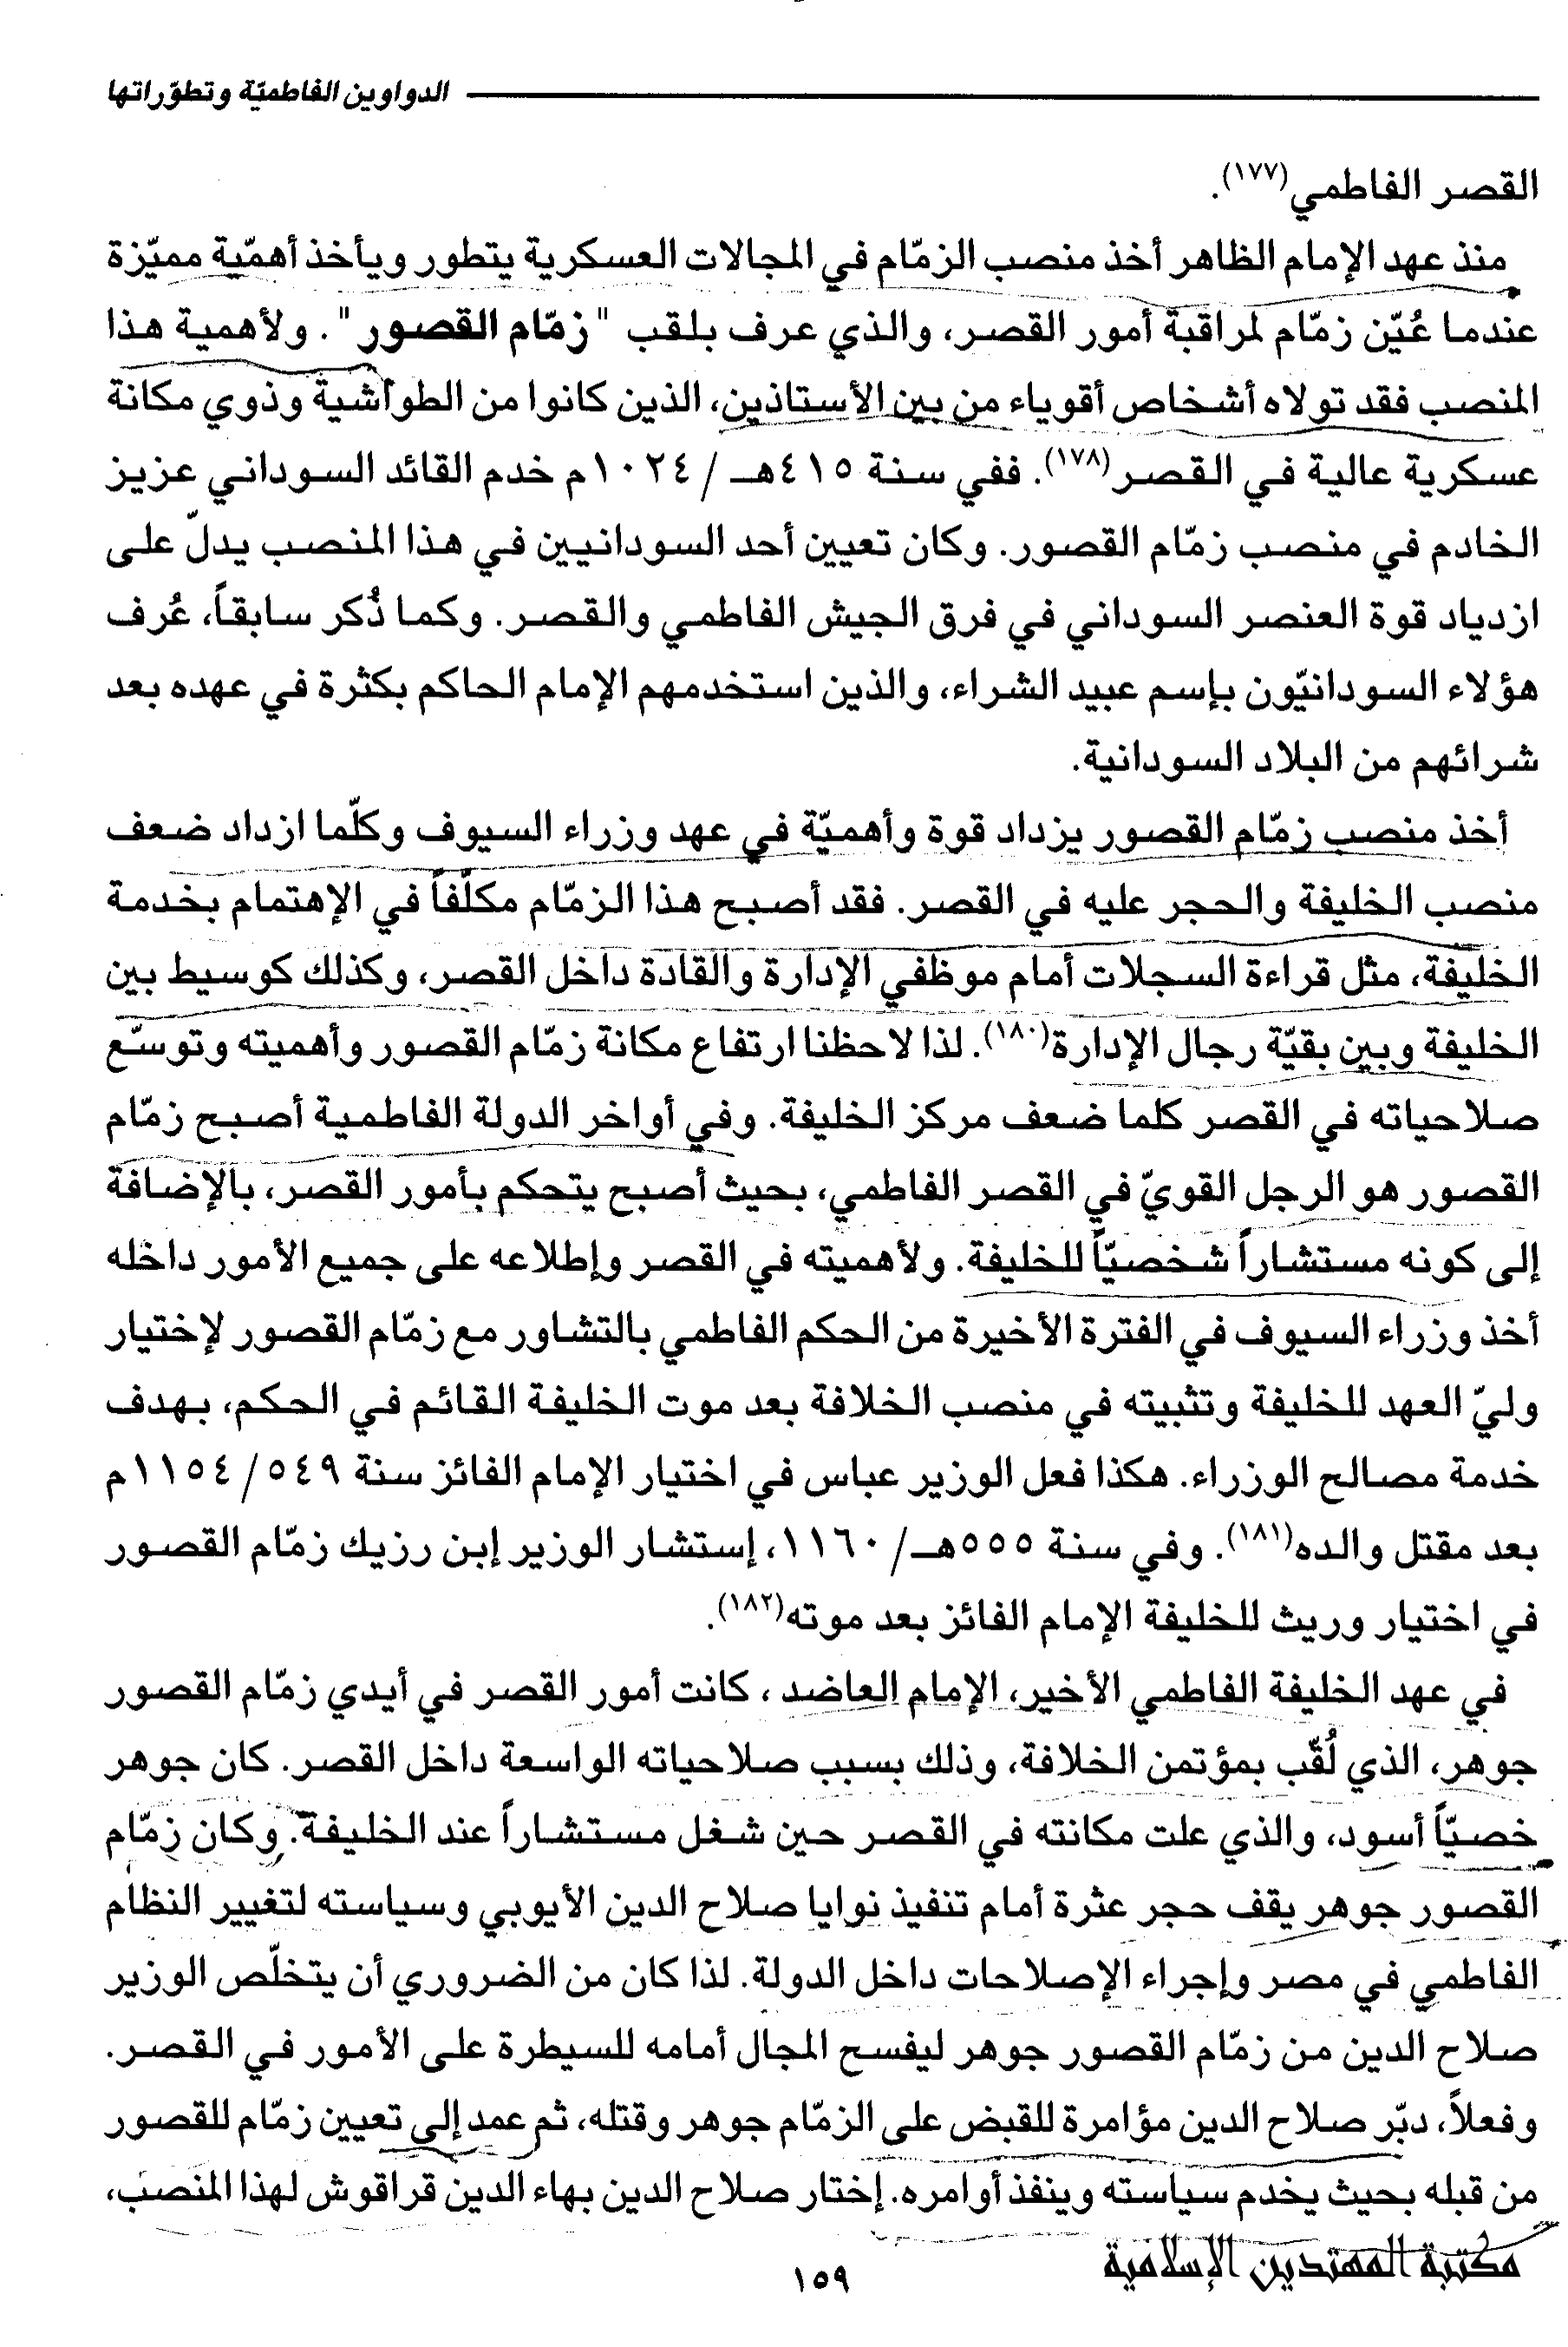 الدواوين الفاطميّة وتطوّراتها
القصر الفاطمي(١٧٧).
منذ عهد الإمام الظاهر أخذ منصب الزمّام في المجالات العسكرية يتطور ويأخذ أهميّة مميّزة
عندما عُيّن زمّام لمراقبة أمور القصر، والذي عرف بلقب "زمّام القصور". ولأهمية هذا
المنصب فقد تولاه أشخاص أقوياء من بين الأستاذين، الذين كانوا من الطواشية وذوي مكانة
عسكرية عالية في القصر(١٧٨). ففي سنة ٤١٥هـ / ١٠٢٤م خدم القائد السوداني عزيز
الخادم في منصب زمّام القصور. وكان تعيين أحد السودانيين في هذا المنصب يدلّ على
ازدياد قوة العنصر السوداني في فرق الجيش الفاطمي والقصر. وكما ذُكر سابقاً، عُرف
هؤلاء السودانيّون بإسم عبيد الشراء، والذين استخدمهم الإمام الحاكم بكثرة في عهده بعد
شرائهم من البلاد السودانية.
أخذ منصب زمّام القصور يزداد قوة وأهميّة في عهد وزراء السيوف وكلّما ازداد ضعف
منصب الخليفة والحجر عليه في القصر. فقد أصبح هذا الزمّام مكلّفاً في الإهتمام بخدمة
الخليفة، مثل قراءة السجلات أمام موظفي الإدارة والقادة داخل القصر، وكذلك كوسيط بين
الخليفة وبين بقيّة رجال الإدارة(١٨٠). لذا لاحظنا ارتفاع مكانة زمّام القصور وأهميته وتوسّع
صلاحياته في القصر كلما ضعف مركز الخليفة. وفي أواخر الدولة الفاطمية أصبح زمّام
القصور هو الرجل القويّ في القصر الفاطمي، بحيث أصبح يتحكم بأمور القصر، بالإضافة
إلى كونه مستشاراً شخصيّاً للخليفة. ولأهميته في القصر وإطلاعه على جميع الأمور داخله
أخذ وزراء السيوف في الفترة الأخيرة من الحكم الفاطمي بالتشاور مع زمّام القصور لإختيار
وليّ العهد للخليفة وتثبيته في منصب الخلافة بعد موت الخليفة القائم في الحكم، بهدف
خدمة مصالح الوزراء. هكذا فعل الوزير عباس في اختيار الإمام الفائز سنة ٥٤٩/ ١١٥٤م
بعد مقتل والده(١٨١). وفي سنة ٥٥٥هـ/ ١١٦٠، إستشار الوزير إبن رزيك زمّام القصور
في اختيار وريث للخليفة الإمام الفائز بعد موته(١٨٢).
في عهد الخليفة الفاطمي الأخير، الإمام العاضد ، كانت أمور القصر في أيدي زمّام القصور
جوهر، الذي لُقّب بمؤتمن الخلافة، وذلك بسبب صلاحياته الواسعة داخل القصر. كان جوهر
خصيّاً أسود، والذي علت مكانته في القصر حين شغل مستشاراً عند الخليفة. وكان زمّام
القصور جوهر يقف حجر عثرة أمام تنفيذ نوايا صلاح الدين الأيوبي وسياسته لتغيير النظام
الفاطمي في مصر وإجراء الإصلاحات داخل الدولة. لذا كان من الضروري أن يتخلّص الوزير
صلاح الدين من زمّام القصور جوهر ليفسح المجال أمامه للسيطرة على الأمور في القصر.
وفعلاً، دبّر صلاح الدين مؤامرة للقبض على الزمّام جوهر وقتله، ثم عمد إلى تعيين زمّام للقصور
من قبله بحيث يخدم سياسته وينفذ أوامره. إختار صلاح الدين بهاء الدين قراقوش لهذا المنصب،
مكتبة المهتدين الإسلامية
١٥٩